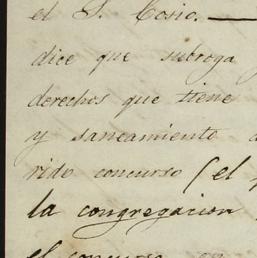 el S. Cosio.—
dice que subroga
derechos que tiene
y saneamiento
rido concurso (el
la congregacion
el concurso en